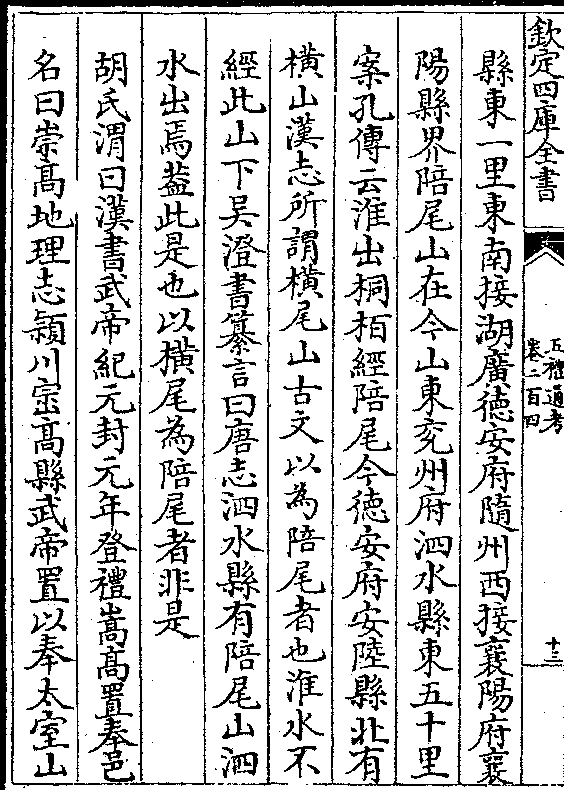 欽定四庫全書
五禮通考
卷二百四
十三
縣東一里東南接湖廣德安府隨州西接襄陽府襄
陽縣界陪尾山在今山東兖州府泗水縣東五十里
案孔傳云淮出桐栢經陪尾今德安府安陸縣北有
橫山漢志所謂橫尾山古文以為陪尾者也淮水不
經此山下吴澄書纂言曰唐志泗水縣有陪尾山泗
水出焉葢此是也以橫尾為陪尾者非是
胡氏渭曰漢書武帝紀元封元年登禮嵩髙置奉邑
名曰崇髙地理志潁川崈髙縣武帝置以奉太室山